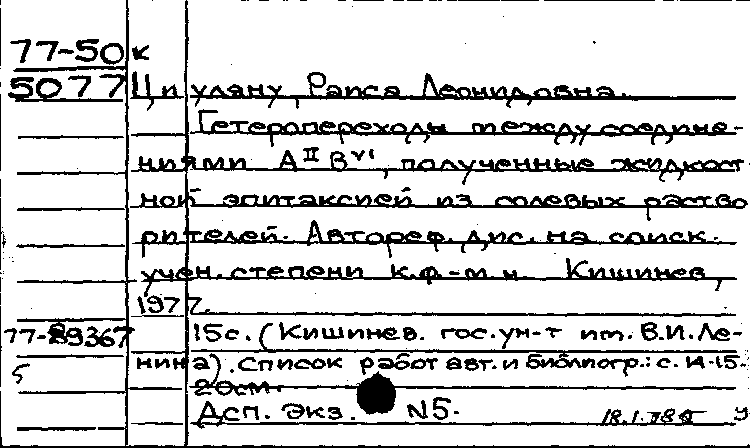 77-50 к
5077 Циуляну, Раиса Леонидовна.
Гетеропереходы между соедине-
ниями AᴵᴵBⱽᴵ, полученные жидкост
ной эпитаксией из солевых раство
рителей. Автореф. дис. на соиск.
учен. степени к.ф.-м.н. Кишинев,
1977.
77-89367 15с. (Кишинев. гос. ун-т им. В.И. Ле-
нина). Список работ авт. и библиогр.: с. 14-15.
5
20см.
Дсп. Экз. N5.